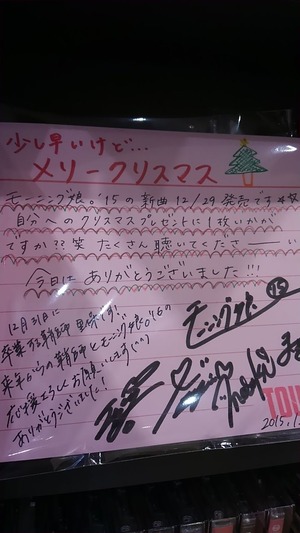 少し早いけど…
メリークリスマス
モーニング娘。'15の新曲12/29発売です
自分へのクリスマスプレゼントに1枚いかが
ですか??笑 たくさん聴いてくださーーい
今日はありがとうございました!!!
12月31日に
卒業する鞘師里保です。
来年からの鞘師とモーニング娘。'16の
応援よろしくお願いします(^^)
ありがとうございました!
モーニング娘 '15
TOU
2015.1